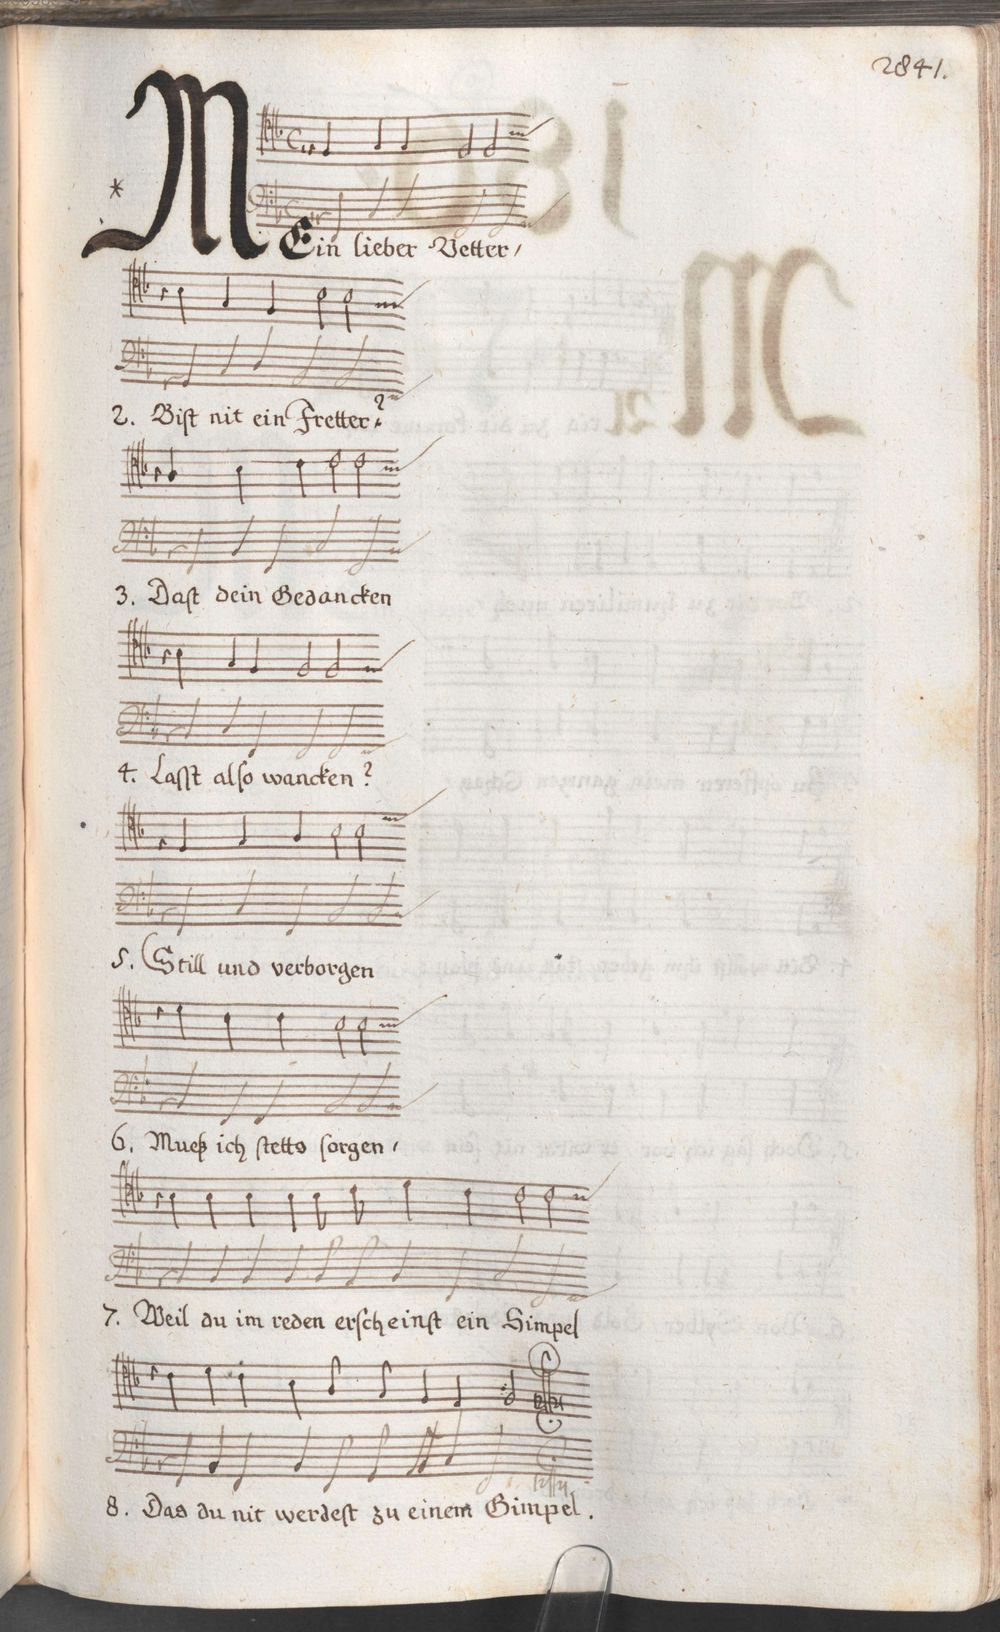 2841.
* MEin lieber Vetter,
2. Bist nit ein Fretter?
3. Dast dein Gedancken
4. Lasst also wancken?
5. Still und verborgen
6. Mueß ich stetts sorgen,
7. Weil du im reden erscheinst ein Simpel
8. Das du nit werdest zu einem Gimpel.